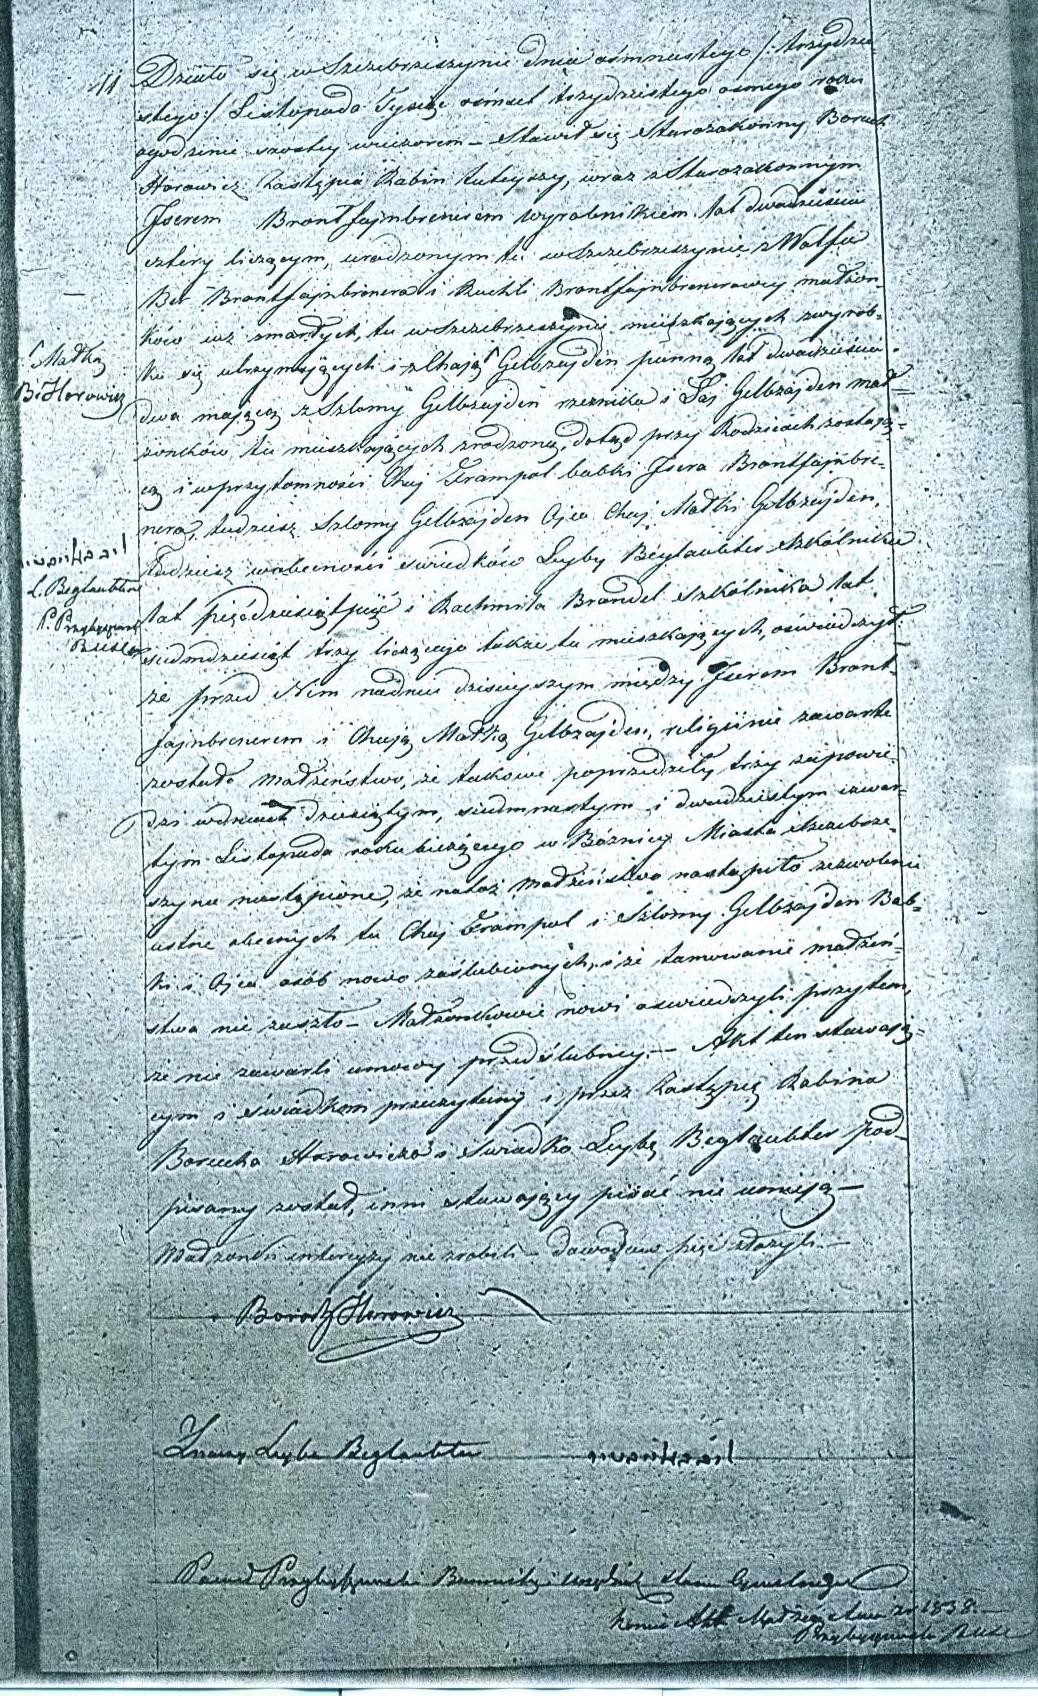 11 Działo się w Szczebrzeszynie dnia ośmnastego /: trzydzie
stego :/ Listopada Tysiąc ośmset trzydziestego osmego roku
o godzinie szostey wieczorem – Stawił się Starozakonny Boruch
Horowicz Zastępca Rabin tuteyszy, wraz z Starozakonnym
Jserem Brontfajnbrenerem wyrobnikiem lat dwadzieścia
cztery liczącym, urodzonym tu w Szczebrzeszynie z Wolfa
Ber Brontfajnbrenera i Ruchli Brontfajnbrenerowey małżon
ków juz zmarłych, tu w Szczebrzeszynie mieszkających z wyrob-
ku się utrzymujących i z Chają Gelbzajden panną lat dwadzieścia
Małką
B. Horowicz
dwa mającą z Szlomy Gelbzajden rzeznika i Łai Gelbzajden mał-
zonków tu mieszkających zrodzoną, dotąd przy Rodzicach zostają-
cą i w przytomności Chai Frampol babki Jsera Brontfajnbre-
nera, tudziesz Szlomy Gelbzajden Ojca Chai Małki Gelbzajden,
Tudziesz w obecności świadków Leyby Beglaubter Szkolnika
L. Beglaubter
P. Przybyszewski
Burm
lat pięćdziesiąt pięć i Rachmila Brandel Szkolnika lat
siedmdziesiąt trzy liczącego także tu mieszkających, oświadczył
że przed Nim na dniu dzisieyszym między Jserem Bront-
fajnbrenerem i Chają Małką Gelbzajden, religijnie zawarte
zostało małżeństwo, ze takowe poprzedziły trzy zapowie
dzi w dniach dziesiątym, siedmnastym i dwudziestym czwar-
tym Listopada roku bieżącego w Bóżnicy Miasta Szczebrze-
szyna nastąpione, że na toż małżeństwo nastąpiło zezwolenie
ustne obecnych tu Chai Frampol i Szlomy Gelbzajden Bab-
ki i Ojca osób nowo zaślubionych, i że tamowanie małżeń-
stwa nie zaszło – Małżonkowie nowi oświadczyli przytem,
że nie zawarli umowy przedślubney – Akt ten stawają-
cym i świadkom przeczytany i przez Zastępcę Rabina
Borucha Horowicza i świadka Leybę Beglaubter pod-
pisany został, inni stawający pisać nie umieją –
Małżonki intercyzy nie zrobili – dowodów pięć złożyli –
Boruch Horowicz
Znaczy Leyba Beglaubter
Paweł Przybyszewski Burmistrz i Urzędnik Stanu Cywilnego
koniec Akt Małżeństw za r 1838.
Przybyszewski Burm